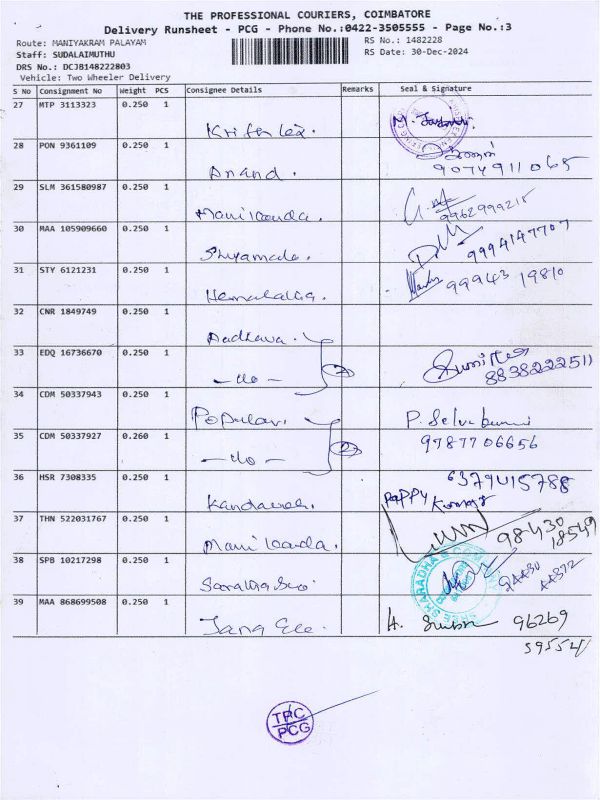 THE PROFESSIONAL COURIERS, COIMBATORE
Delivery Runsheet - PCG - Phone No.:0422-3505555 - Page No.:3
Route: MANIYAKRAM PALAYAM
RS No.: 1482228
Staff: SUDALAIMUTHU
RS Date: 30-Dec-2024
DRS No.: DCJB148222803
Vehicle: Two Wheeler Delivery
S No Consignment No Weight PCS Consignee Details Remarks Seal & Signature
27 MTP 3113323 0.250 1
28 PON 9361109 0.250 1
Anand.
9074911065
29 SLM 361580987 0.250 1
9962999215
30 MAA 105909660 0.250 1
Shyamala.
9994147707
31 STY 6121231 0.250 1
Hemalatha.
99943 19810
32 CNR 1849749 0.250 1
Aadhava.
33 EDQ 16736670 0.250 1
- do -
2
8838222511
34 CDM 50337943 0.250 1
Popular.
P. Selvakumari
35 CDM 50337927 0.260 1
- do -
2
9787706656
36 HSR 7308335 0.250 1
6379415788
PAPPY
Kumar
37 THN 522031767 0.250 1
98430
18549
38 SPB 10217298 0.250 1
94430
44872
39 MAA 868699508 0.250 1
96269
59554
TPC
PCG